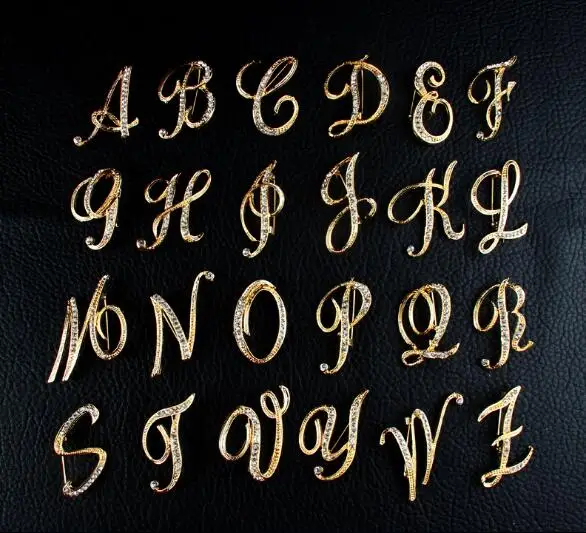 A B C D E F
G H I J K L
M N O P Q R
S T V Y W Z